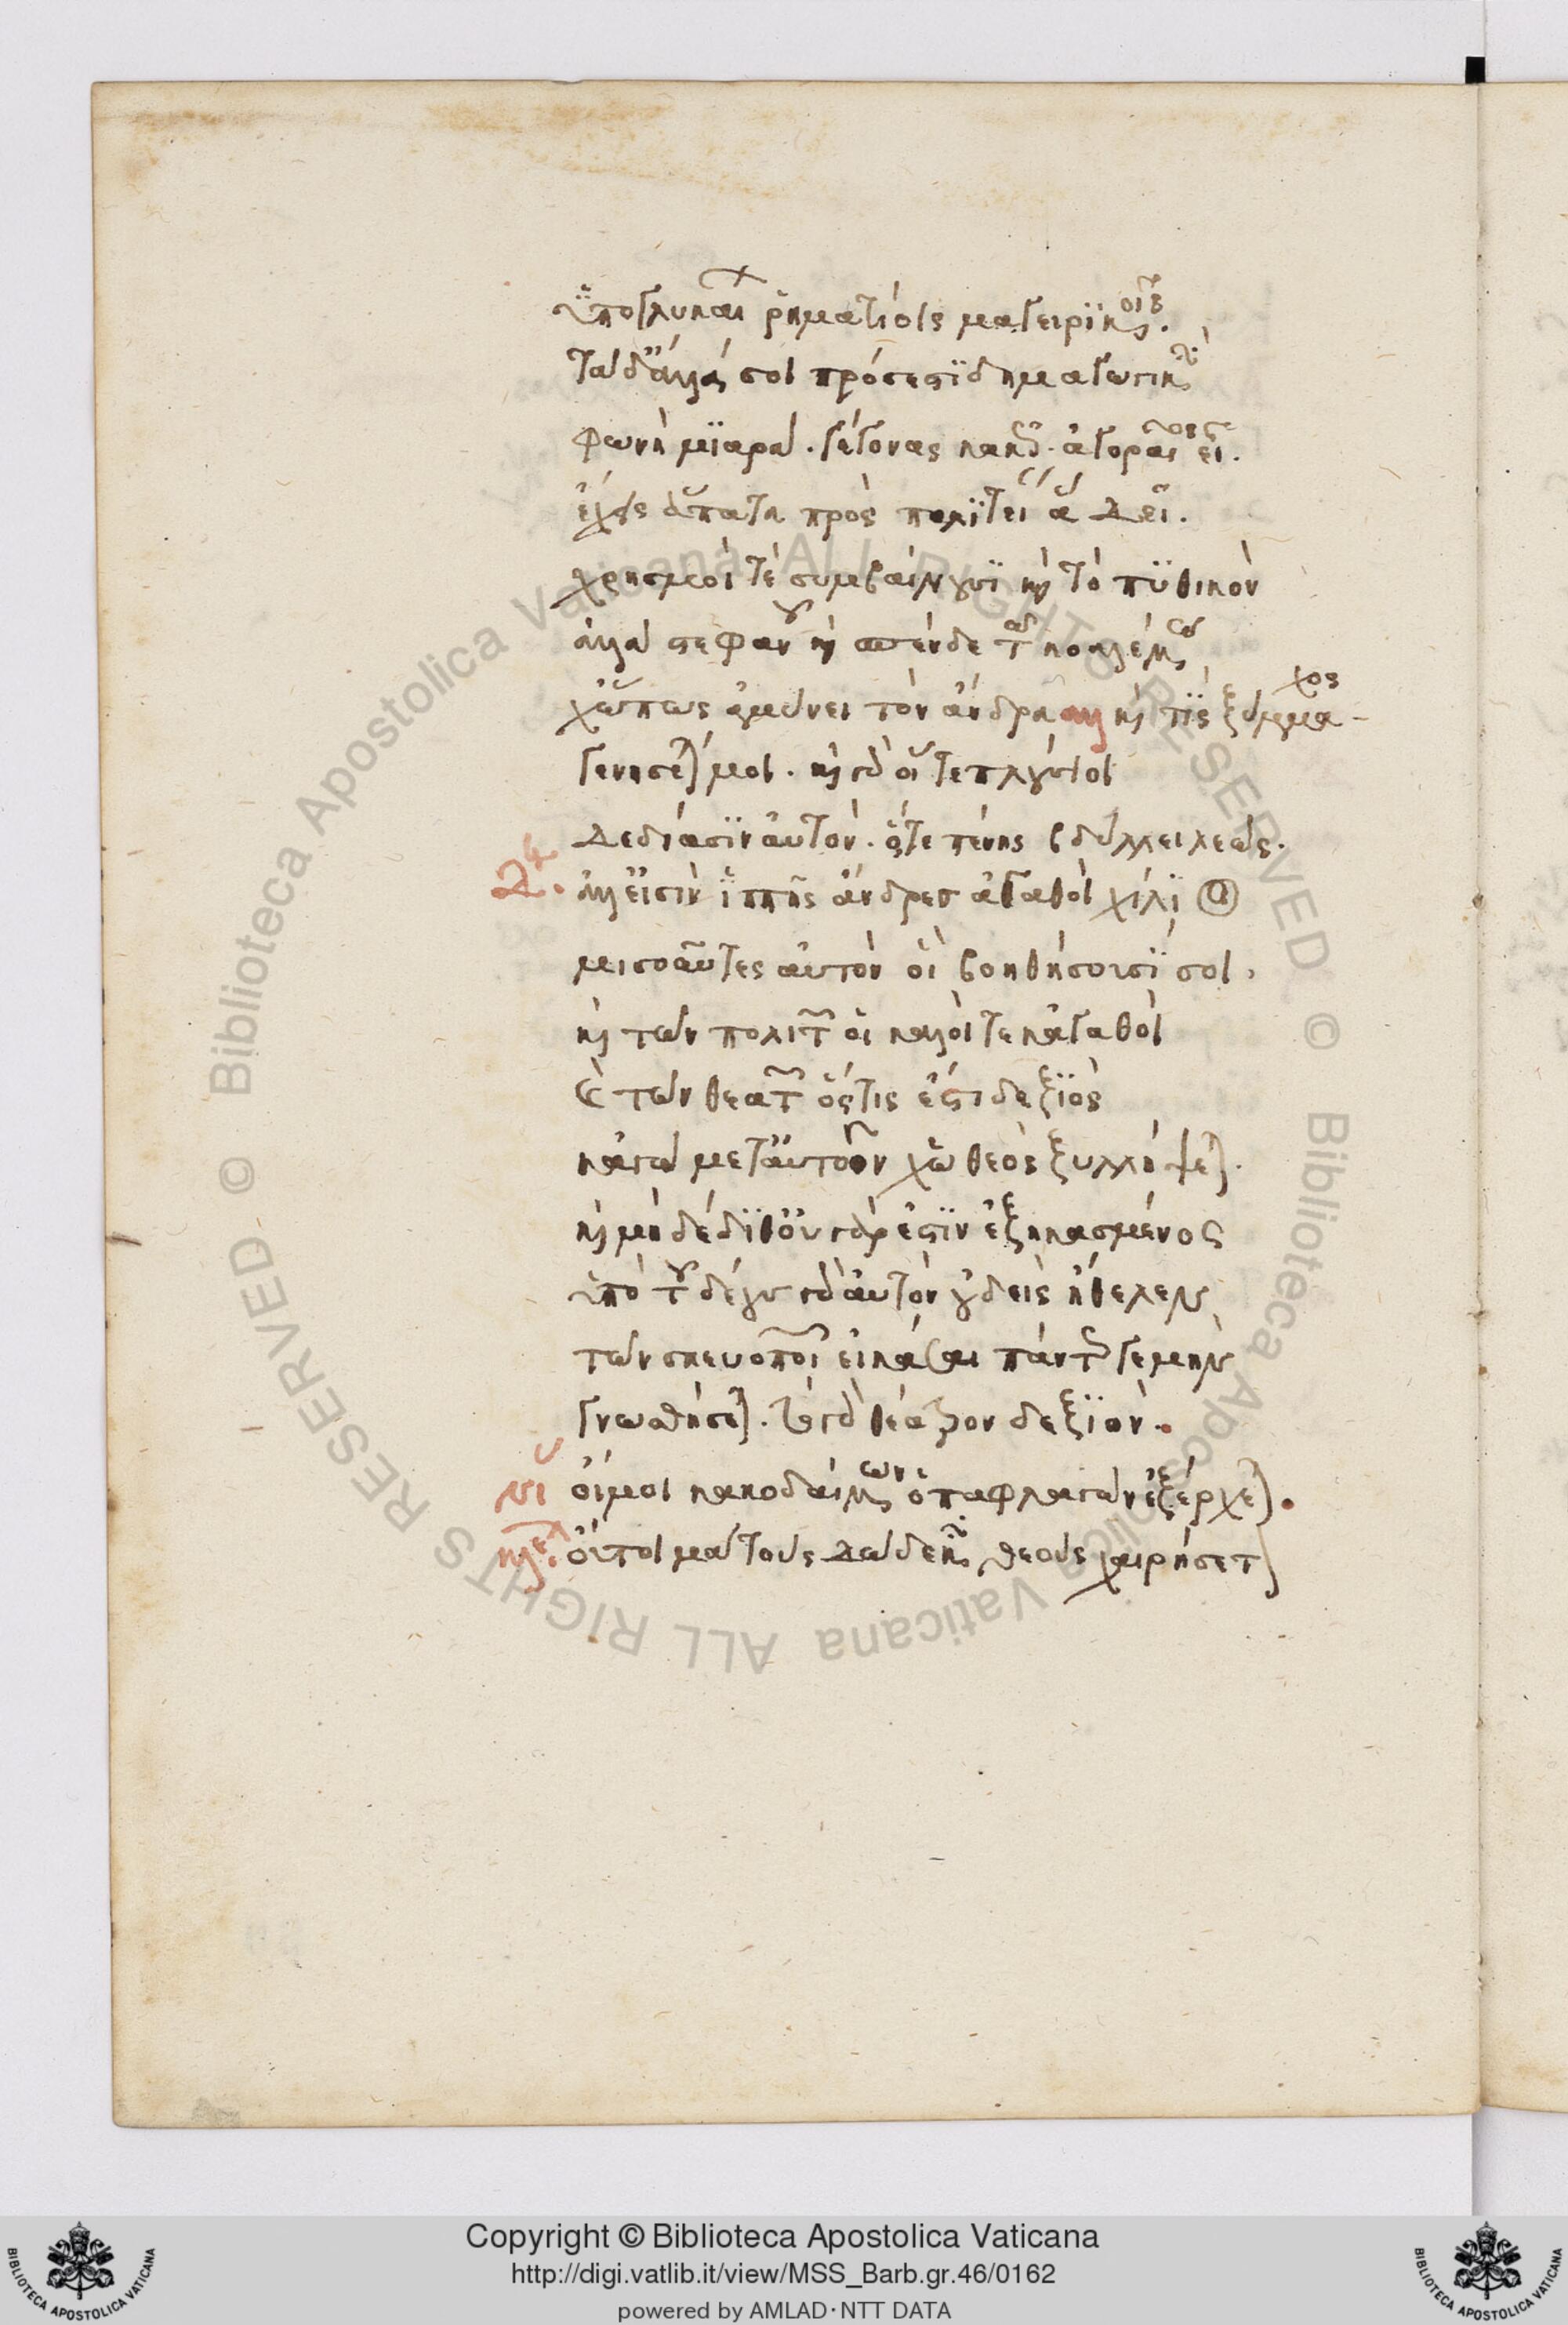 ὑπογλυκαίνων ῥηματίοις μαγειρικοῖς.
τὰ δ' ἄλλα σοι πρόσεστι δημαγωγικὰ
φωνὴ μιαρὰ. γέγονας κακῶς. ἀγοραῖος εἶ.
ἔχεις ἅπαντα πρὸς πολιτείαν ἃ δεῖ.
χρησμοί τε συμβαίνουσι καὶ τὸ πυθικὸν
ἀλλὰ στεφανοῦ καὶ σπένδε τῶ κοαλέμω
χὤπως ἀμυνεῖ τὸν ἄνδρα αλλ καὶ τίς ξύμμαχος
γενήσεταί μοι. καὶ γὰρ οἵ τε πλούσιοι
δεδίασιν αὐτὸν. ὅ τε πένης βδύλλει λεώς.
ἀλλ' εἰσὶν ἱππῆς ἄνδρες ἀγαθοὶ χίλιοι
μισοῦντες αὐτὸν οἳ βοηθήσουσί σοι.
καὶ τῶν πολιτῶν οἱ καλοί τε κἀγαθοὶ
καὶ τῶν θεατῶν ὅστις ἐστὶ δεξιὸς
κἀγὼ μετ' αὐτῶν χὠ θεὸς ξυλλήψεται.
καὶ μὴ δέδιθ' οὐ γάρ ἐστιν ἐξηκασμένος
ὑπὸ τοῦ δέους γὰρ αὐτὸν οὐδεὶς ἤθελεν
τῶν σκευοποιῶν εἰκάσαι πάντως γε μὴν
γνωσθήσεται. τὸ γὰρ θέατρον δεξιόν.
νι οἴμοι κακοδαίμων ὁ παφλαγὼν ἐξέρχεται.
κλε. οὔτοι μὰ τοὺς δώδεκα θεοὺς χαιρήσετον
© Biblioteca Apostolica Vaticana ALL RIGHTS RESERVED © Biblioteca Apostolica Vaticana ALL RIGHTS RESERVED
Copyright © Biblioteca Apostolica Vaticana
http://digi.vatlib.it/view/MSS_Barb.gr.46/0162
powered by AMLAD·NTT DATA
BIBLIOTECA APOSTOLICA VATICANA
BIBLIOTECA APOSTOLICA VATICANA